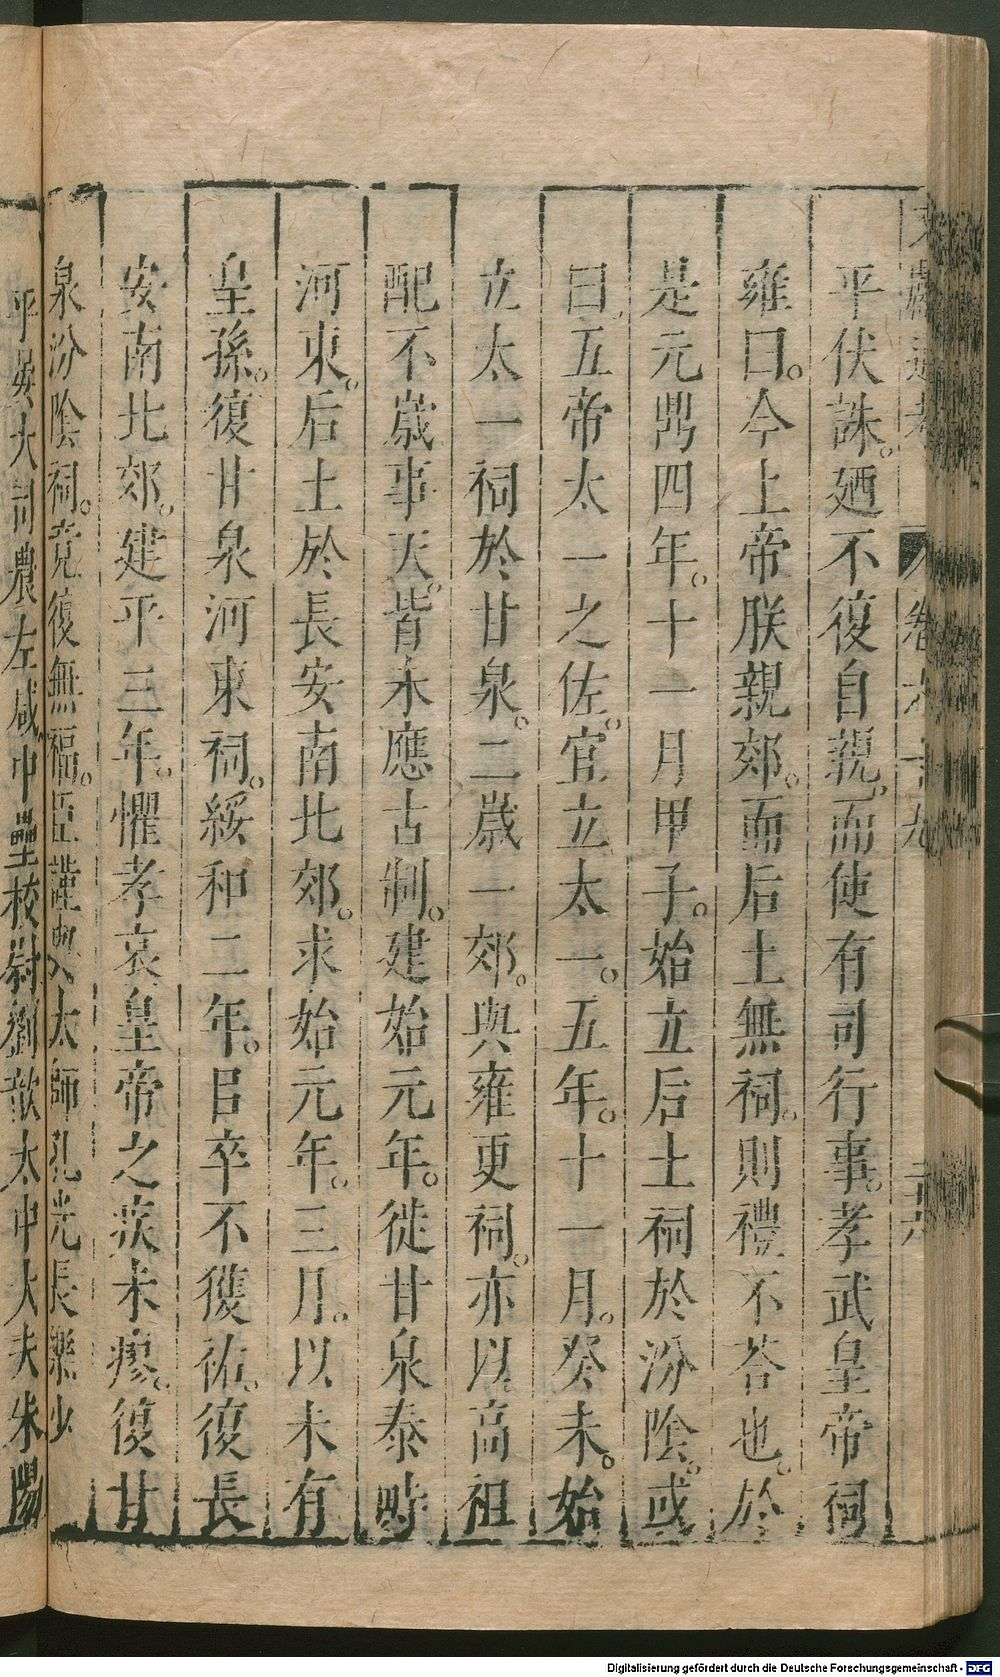 平伏誅。廼不復自親。而使有司行事。孝武皇帝祠
雍曰。今上帝朕親郊。而后土無祠。則禮不荅也。於
是元鼎四年。十一月甲子。始立后土祠於汾陰。或
曰五帝太一之佐。宜立太一。五年。十一月。癸未。始
立太一祠於甘泉。二歲一郊。與雍更祠。亦以高祖
配不歲事天。皆未應古制。建始元年。徙甘泉泰畤
河東。后土於長安南北郊。永始元年。三月。以未有
皇孫。復甘泉河東祠。綏和二年。㠯卒不獲祐。復長
安南北郊。建平三年。懼孝哀皇帝之疾未瘳。復甘
泉汾陰祠。竟復無福。臣謹與太師孔光長樂少
平晏大司農左咸中壘校尉劉歆太中大夫朱陽
Digitalisierung gefördert durch die Deutsche Forschungsgemeinschaft - DFG